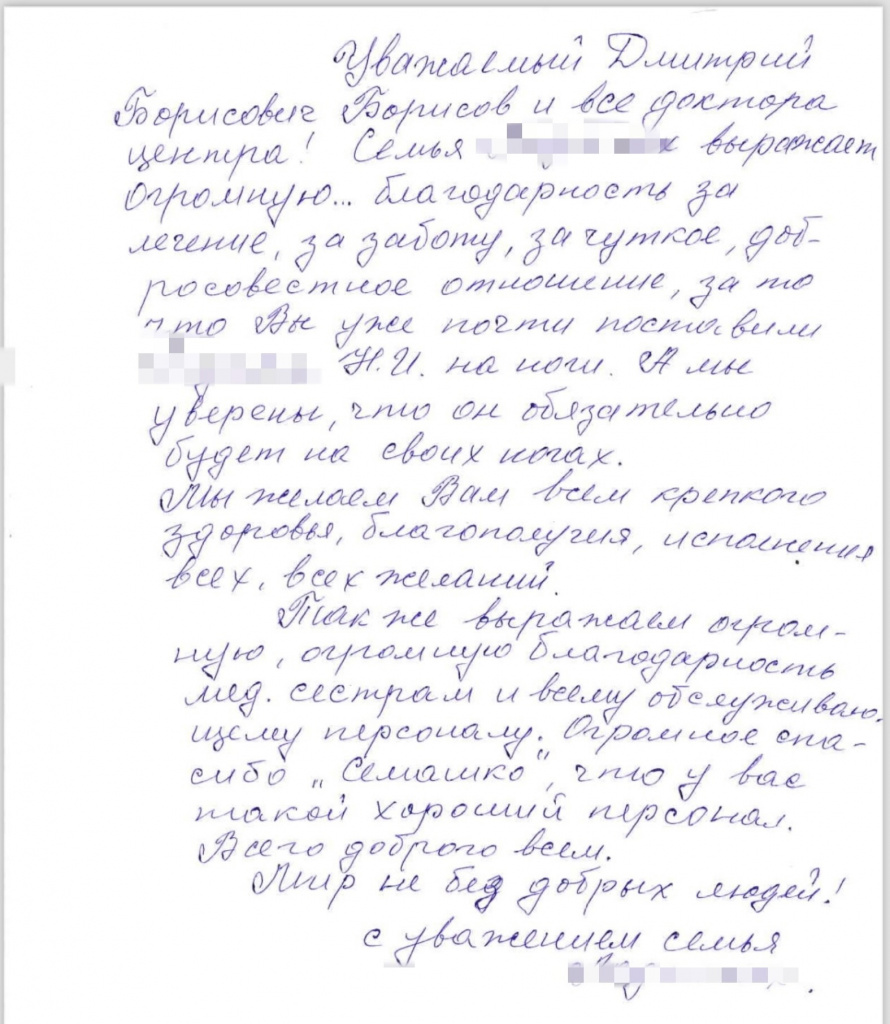 Уважаемый Дмитрий
Борисович Борисов и все доктора
центра! Семья выражает
огромную... благодарность за
лечение, за заботу, за чуткое, доб-
росовестное отношение, за то
что Вы уже почти поставили
Н.И. на ноги. А мы
уверены, что он обязательно
будет на своих ногах.
Мы желаем Вам всем крепкого
здоровья, благополучия, исполнения
всех, всех желаний.
Так же выражаем огром-
ную, огромную благодарность
мед. сестрам и всему обслуживаю-
щему персоналу. Огромное спа-
сибо „Семашко", что у вас
такой хороший персонал.
Всего доброго всем.
Мир не без добрых людей!
с уважением семья